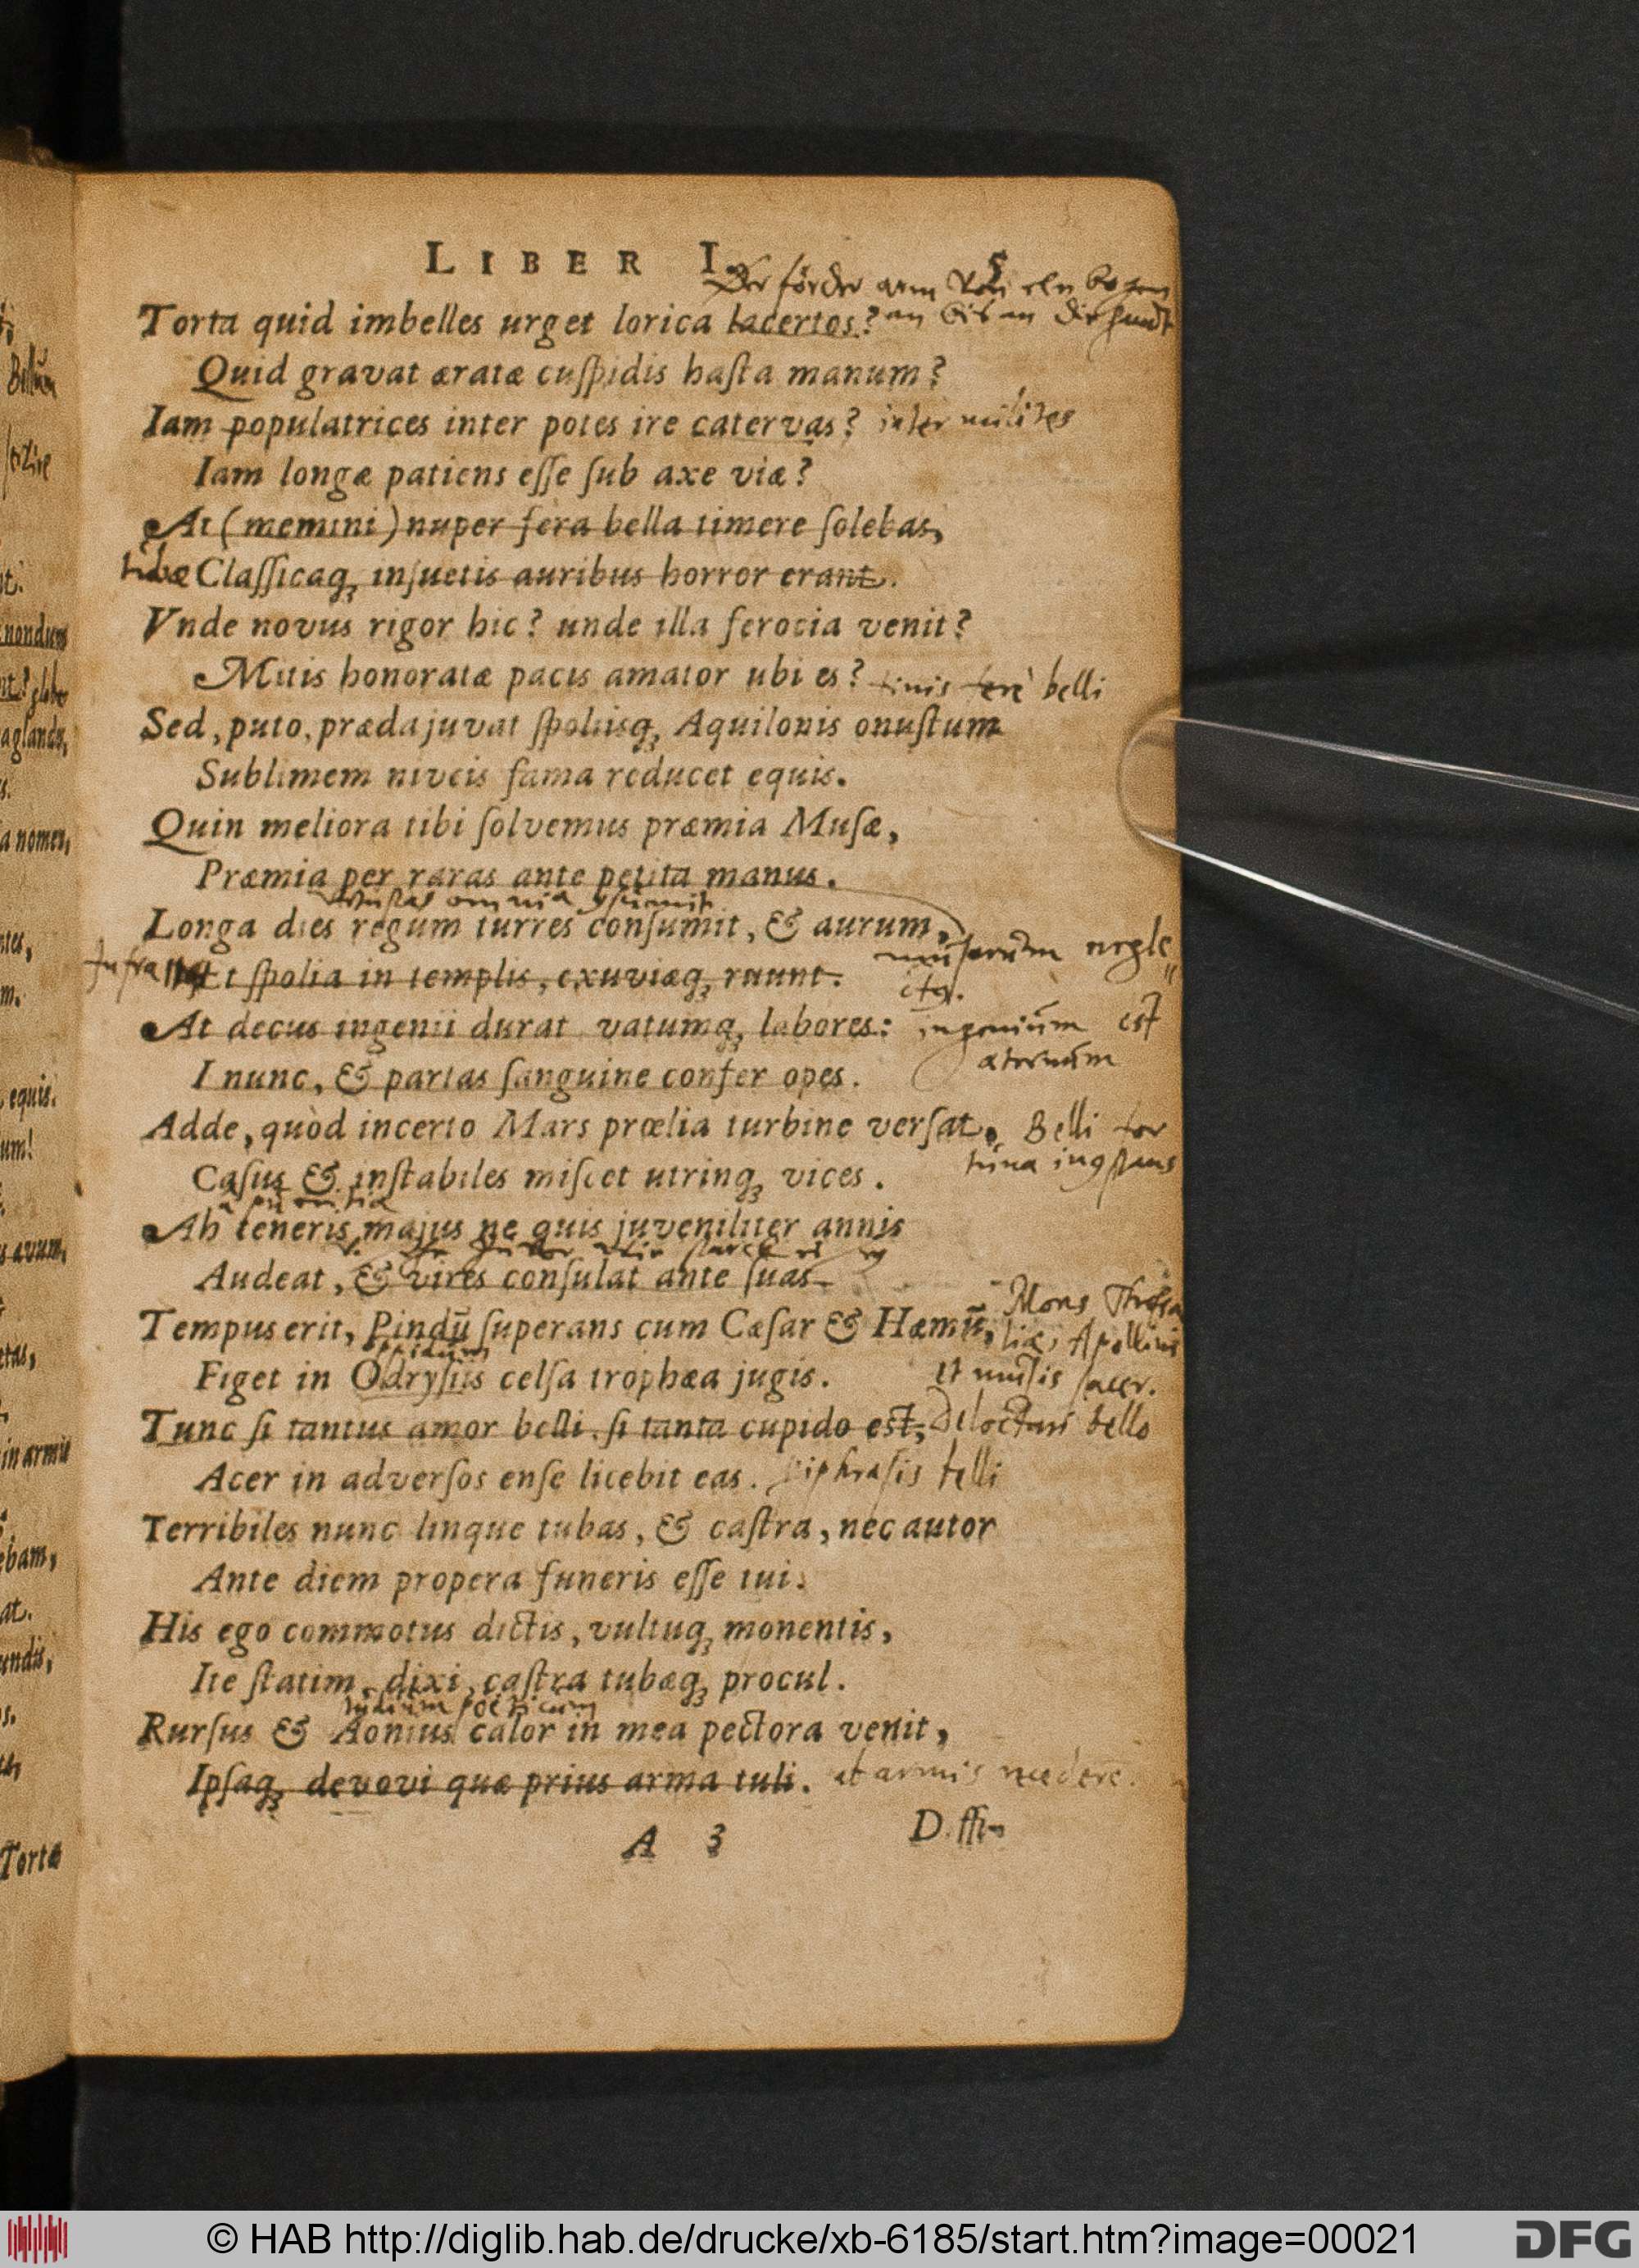 LIBER I. 5
Der förder arm von eln bogen
Torta quid imbelles urget lorica lacertos? an bis an die handt
Quid gravat æratæ cuſpidis haſta manum?
Iam populatrices inter potes ire catervas? inter milites
Iam longæ patiens eſſe ſub axe viæ?
At (memini) nuper fera bella timere ſolebas,
tubæ Claſſicaq́; inſuetis auribus horror erant.
Vnde novus rigor hic? unde illa ferocia venit?
Mitis honoratæ pacis amator ubi es? finis ferè belli
Sed, puto, præda juvat ſpoliisq́; Aquilonis onuſtum
Sublimem niveis fama reducet equis.
Quin meliora tibi ſolvemus præmia Muſæ,
Præmia per raras ante petita manus.
vetustas omnia
Longa dies regum turres conſumit, & aurum,
musarum negle
Et ſpolia in templis, exuviæq́; ruunt.
At decus ingenii durat vatumq́; labores: ingenium est
æternum
I nunc, & partas ſanguine confer opes.
Adde, quòd incerto Mars prœlia turbine verſat, Belli for
tuna
Caſus & inſtabiles miſcet utrinq́; vices.
à pueritia
Ah teneris majus ne quis juveniliter annis
Audeat, & vires conſulat ante ſuas.
Mons
Tempus erit, Pindū ſuperans cum Cæſar & Hæmū, liæ, Apollini
oppidum
Figet in Odryſiis celſa trophæa jugis. et musis sacer.
Tunc ſi tantus amor belli, ſi tanta cupido est; Delectari bello
Acer in adverſos enſe licebit eas. belli
Terribiles nunc linque tubas, & caſtra, nec autor
Ante diem propera funeris eſſe tui.
His ego commotus dictis, vultuq́; monentis,
Ite ſtatim, dixi, caſtra tubæq́; procul.
poeticum
Rurſus & Aonius calor in mea pectora venit,
Ipſaq́; devovi quæ prius arma tuli. ab armis recedere.
A 3 Diffi-
Bellum
nondum
glebæ
a nomen,
equis.
um!
s avum,
etas,
in armis
ebam,
at.
undis,
Torta
© HAB http://diglib.hab.de/drucke/xb-6185/start.htm?image=00021
DFG